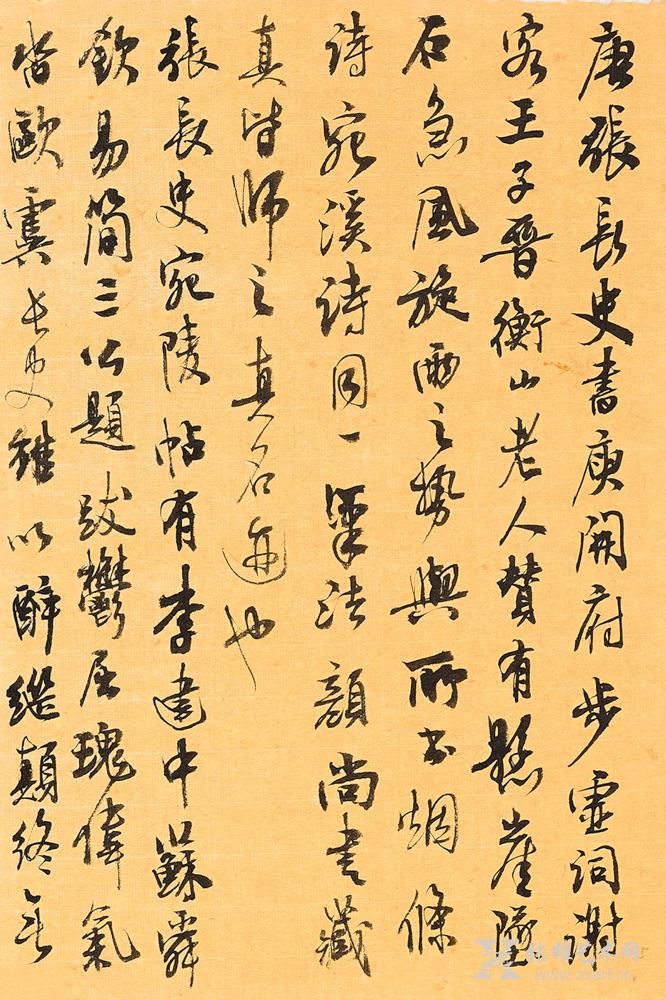 唐張長史書庾開府步虛詞謝
客王子晉衡山老人贊有懸崖墜
石急風旋雨之勢與所書烟條
詩宛溪詩同一筆法顏尚書藏
真皆師之真名迹也
張長史宛陵帖有李建中蘇舜
欽易簡三公題跋鬱屈瑰偉氣
沓歐虞長史雖以醉繼顛終無
张雄艺术网